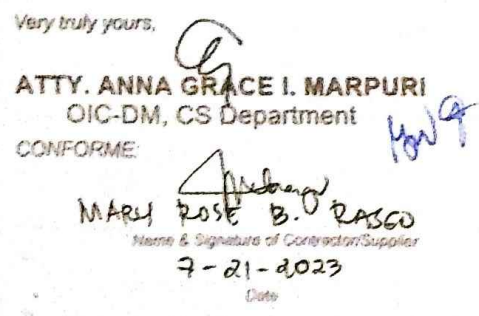 Very truly yours,
ATTY. ANNA GRACE I. MARPURI
OIC-DM, CS Department
CONFORME:
MARY ROSE B. RASGO
Name & Signature of Contractor/Supplier
7-21-2023
Date